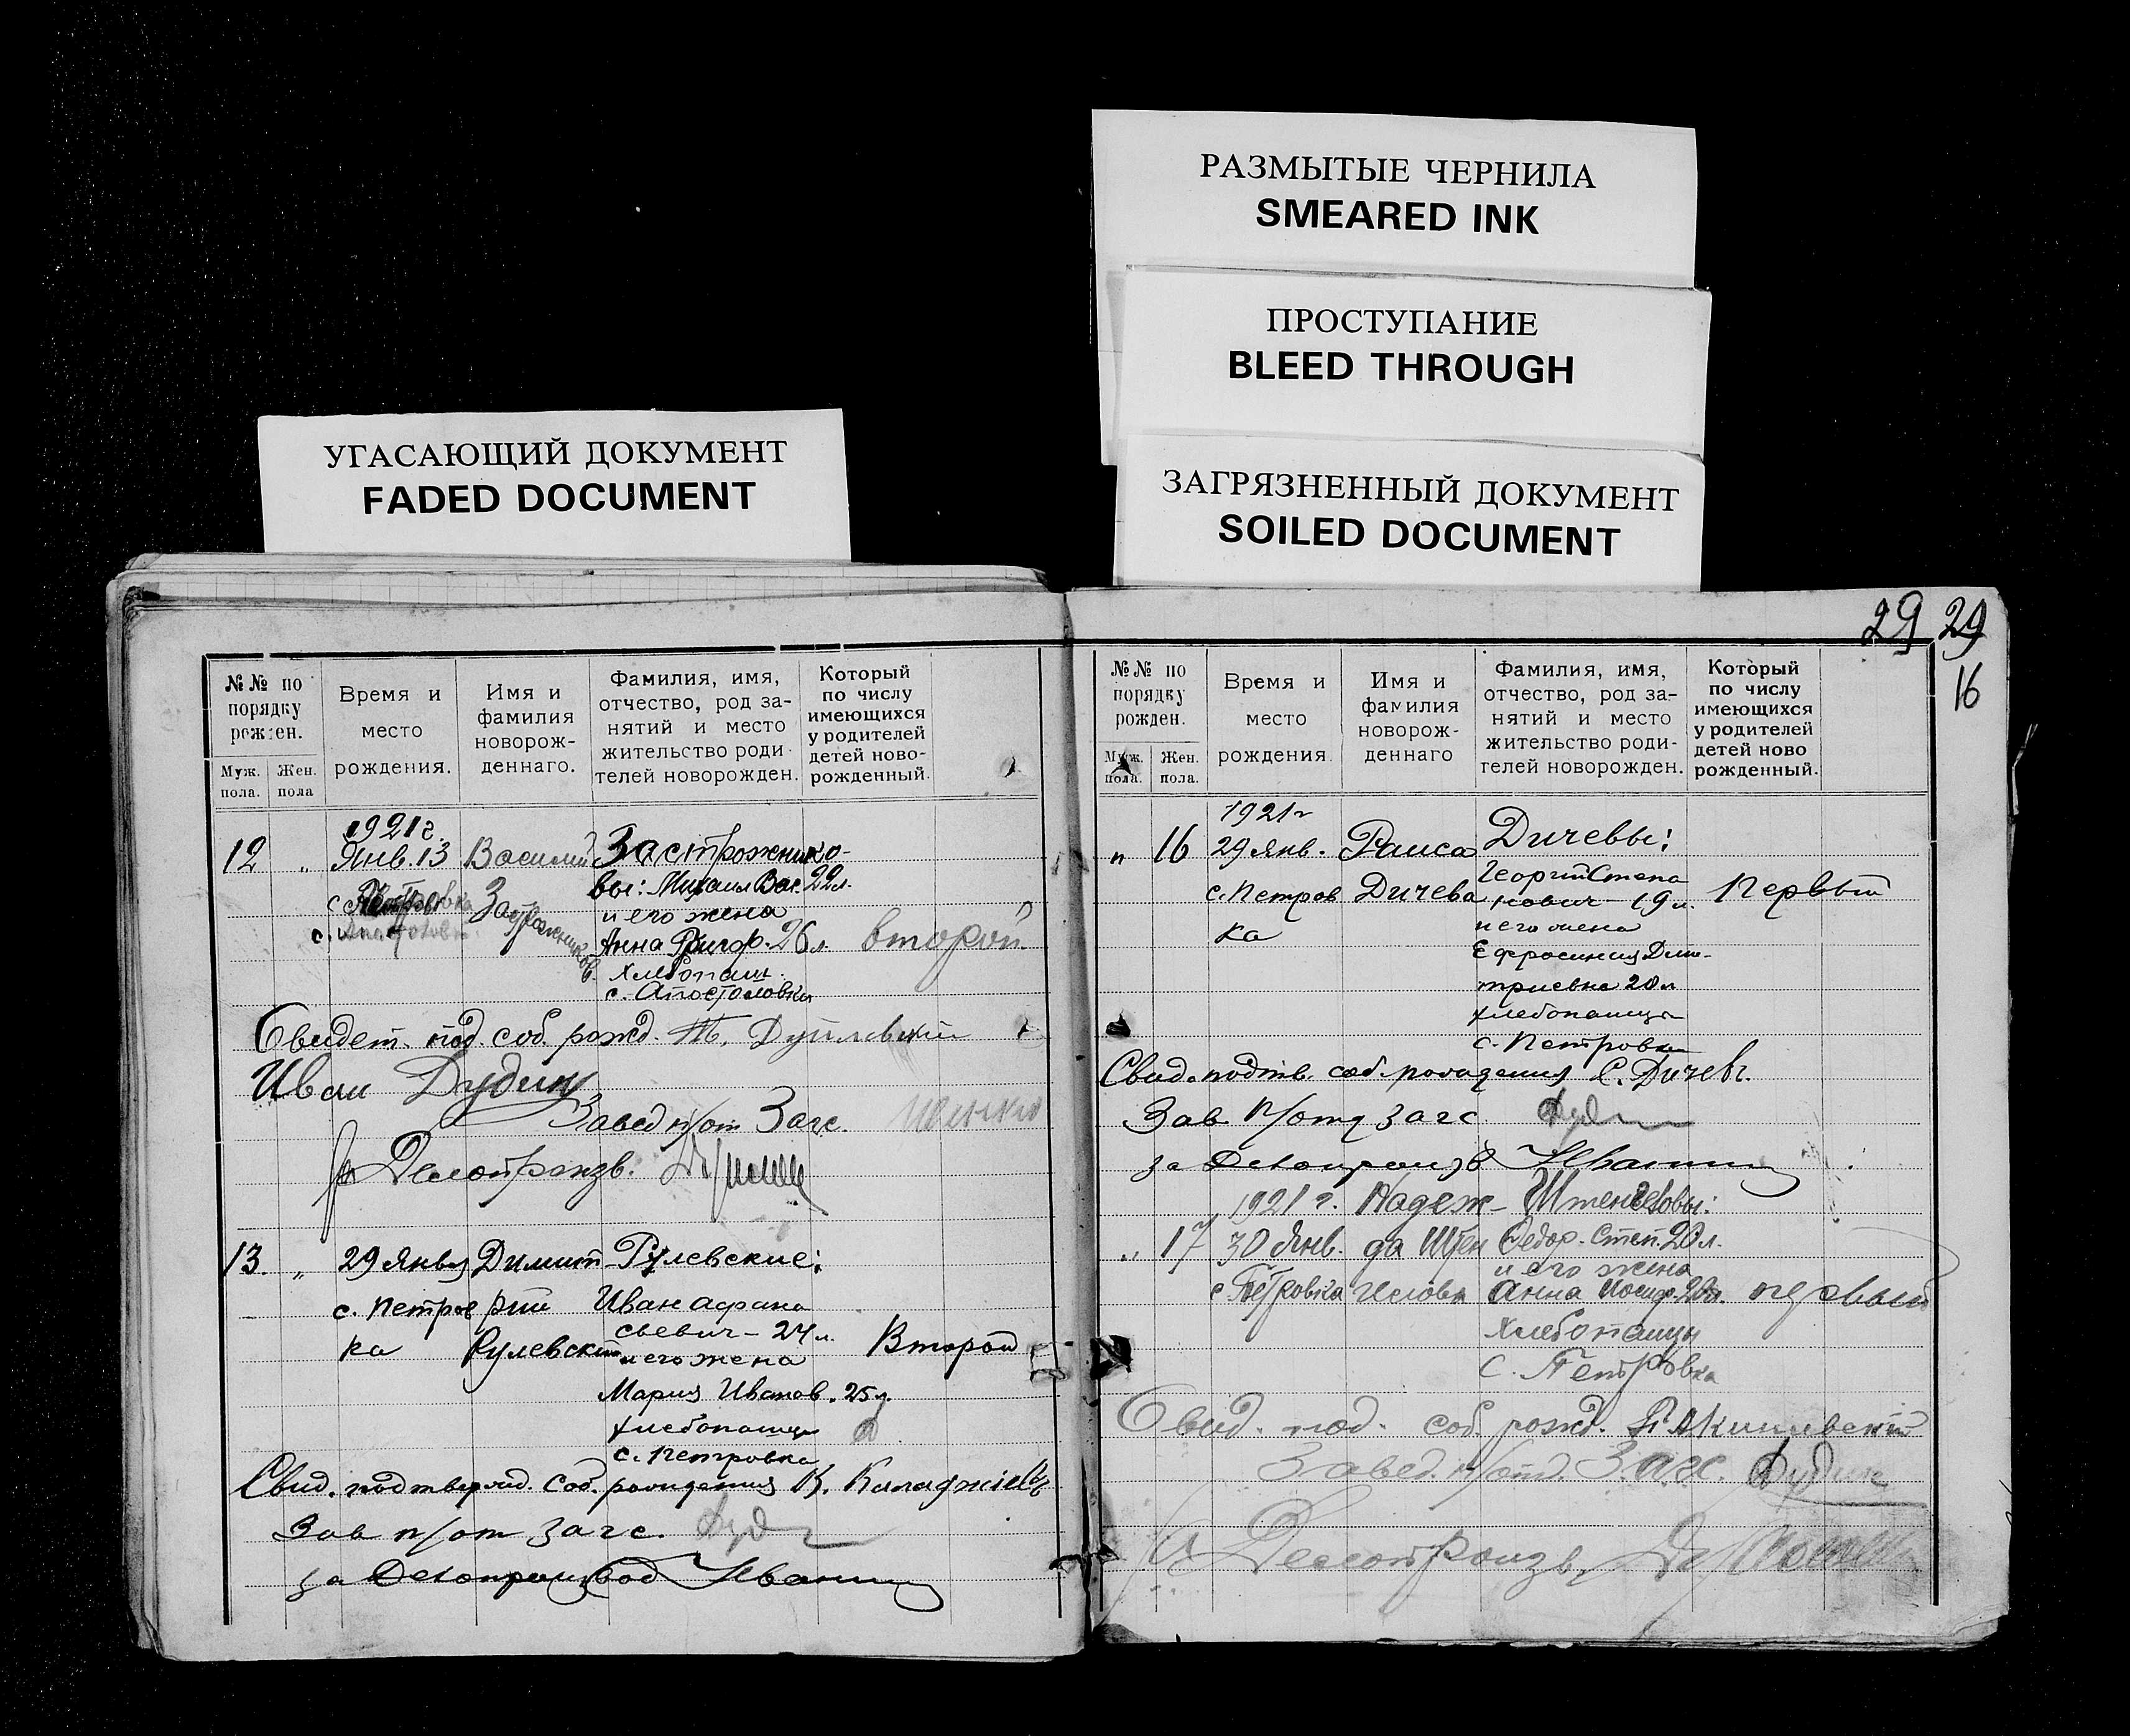 РАЗМЫТЫЕ ЧЕРНИЛА
SMEARED INK
ПРОСТУПАНИЕ
BLEED THROUGH
ЗАГРЯЗНЕННЫЙ ДОКУМЕНТ
SOILED DOCUMENT
УГАСАЮЩИЙ ДОКУМЕНТ
FADED DOCUMENT
№№ по
порядку
рожден.
Муж.
пола.
Жен.
пола
Время и
место
рождения.
Имя и
фамилия
новорож-
деннаго.
Фамилия, имя,
отчество, род за-
нятий и место
жительство роди-
телей новорожден.
Который
по числу
имеющихся
у родителей
детей ново-
рожденный.
12 „
1921 г.
Янв. 13
с.
Василий
Застрожников.
Застрожнико-
вы: Михаил Вас. 22 л.
и его жена
Анна Григор. 26 л.
хлебопаш.
с. Апостоловка
второй
Свидет. под. соб. рожд.
Иван Дудин
Завед п/от Загс.
Делопроизв.
13. „
29 Январ
с. Петров
ка
Димит-
рий
Рулевский
Рулевские:
Иван Афана
сьевич - 24 л.
и его жена
Мария Иванов. 25 л
хлебопашцы
с. Петровка
Второй
Свид. подтвержд. соб. рождения К.
Зав п/от загс.
за Делопроизвод
29 29
16
№№ по
порядку
рожден.
Муж.
пола.
Жен.
пола.
Время и
место
рождения
Имя и
фамилия
новорож-
деннаго
Фамилия, имя,
отчество, род за-
нятий и место
жительство роди-
телей новорожден.
Который
по числу
имеющихся
у родителей
детей ново
рожденный.
„ 16
1921 г
29 Янв.
с. Петров
ка
Раиса
Дичева
Дичевы:
Георгий Степа
нович - 19 л.
и его жена
Ефросиния Дми-
триевна 20 л
хлебопашцы
с. Петровка
Первый
Свид. подтв. соб. рождения С. Дичев.
Зав п/отд загс.
за Делопроизв
„ 17
1921 г.
30 Янв.
с Петровка
Надеж-
да
Федор. Степ. 20 л.
и его жена
Анна Иосиф. 20 л.
хлебопашцы
с. Петровка
первый
Свид. под. соб. рожд.
Завед. п/отд. Загс. Дудин
Делопроизв.